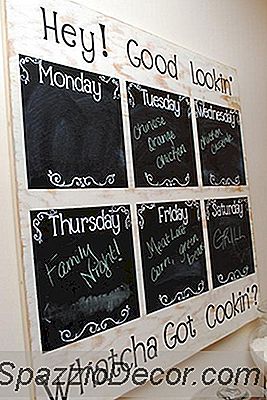 Hey! Good Lookin'
Monday
Tuesday
Chinese
Orange
Chicken
Wednesday
Chicken
Thursday
Family
Night!
Friday
Meat Loaf
Corn, green
beans
Saturday
GRILL
Whatcha Got Cookin'?
SpazzioDecor.com